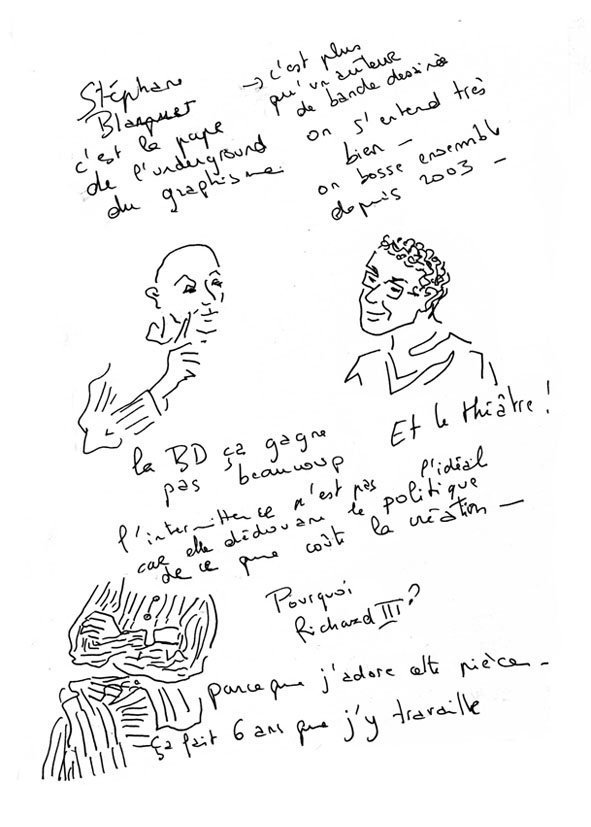 Stéphane
Blanquet
c'est le pape
de l'underground
du graphisme
→ c'est plus
qu'un auteur
de bande dessinée
on s'entend très
bien –
on bosse ensemble
depuis 2003 –
la BD ça gagne
pas beaucoup
Et le théâtre !
l'intermittence n'est pas l'idéal
car elle dédouane le politique
de ce que coûte la création –
Pourquoi
Richard III ?
parce que j'adore cette pièce –
ça fait 6 ans que j'y travaille